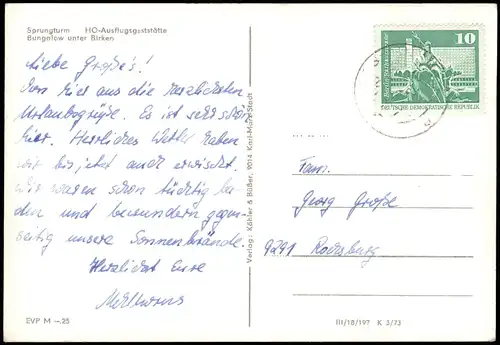 Sprungturm HO-Ausflugsgaststätte
Bungalow unter Birken
Liebe Große's!
Von hier aus die herzlichsten
Urlaubsgrüße. Es ist sehr schön
hier. Herrliches Wetter haben
wir bis jetzt auch erwischt.
Wir waren schon tüchtig ba-
den und bewundern gegen-
seitig unsere Sonnenbrände.
Herzlichst Eure
EVP M –.25
Verlag: Köhler & Büßer, 9014 Karl-Marx-Stadt
10
Berlin, Neptunbrunnen
DEUTSCHE DEMOKRATISCHE REPUBLIK
Fam.
Georg Große
9291 Rochsburg
III/18/197 K 3/73